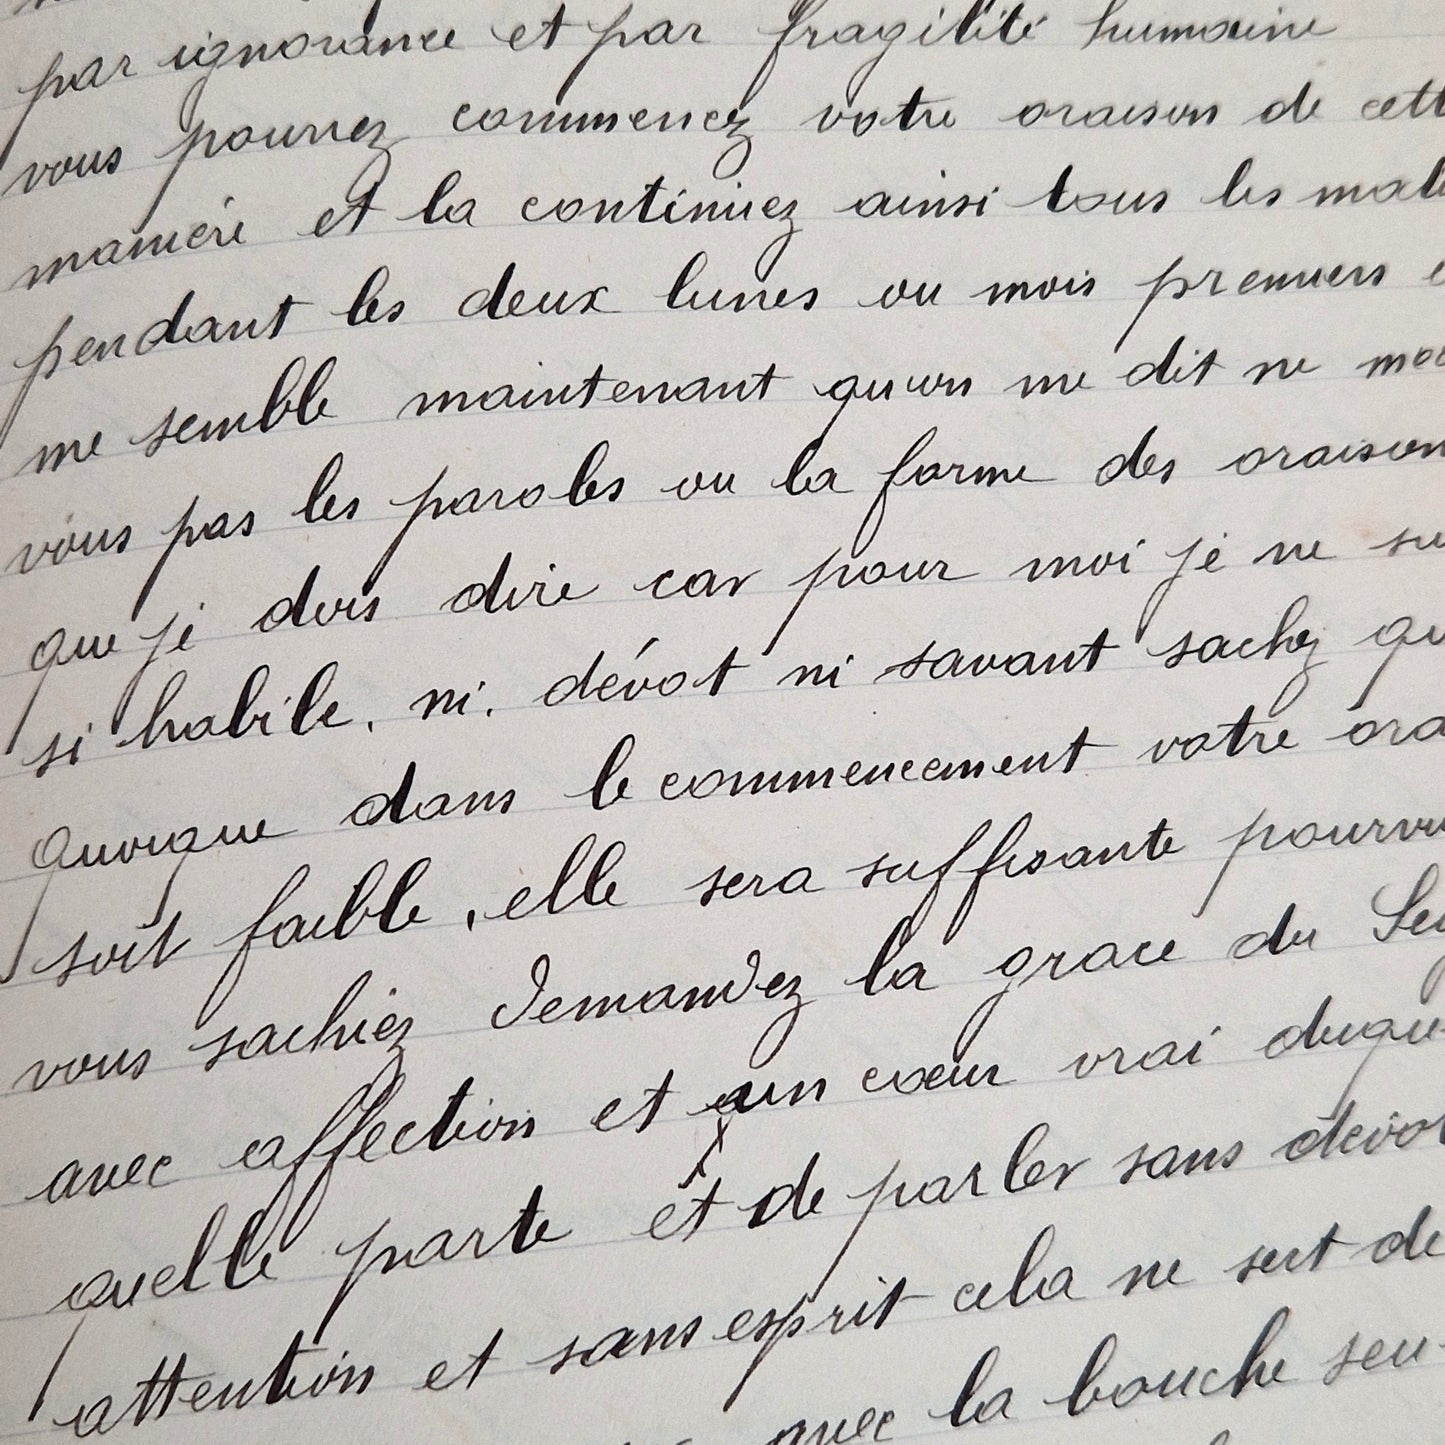 par ignorance et par fragilité humaine
vous pourrez commencez votre oraison de cett
manière et la continuez ainsi tous les mati
pendant les deux lunes ou mois premiers
me semble maintenant qu'on me dit ne
vous pas les paroles ou la forme des oraison
que je dois dire car pour moi je ne su
si habile, ni, dévot ni savant sachez qu
quoique dans le commencement votre ora
soit faible, elle sera suffisante pourvu
vous sachiez demandez la grace du Sei
avec affection et un cœur vrai duqu
quelle parte et de parler sans dévot
attention et sans esprit cela ne sert de
avec la bouche seu